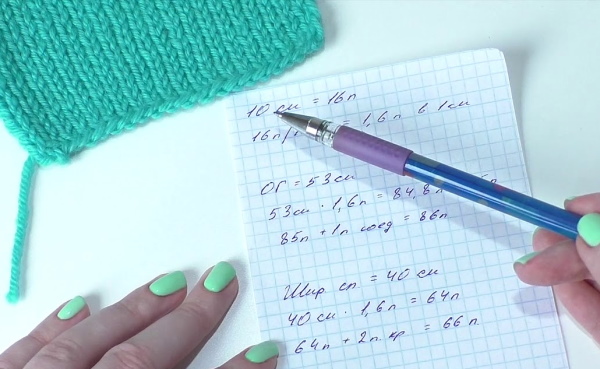 10 см = 16п
16п/ = 1,6п в 1см
ОГ = 53см
53см · 1,6п = 84,8п
85п + 1п соед = 86п
Шир сп = 40 см
40 см · 1,6п = 64п
64п + 2п. кр = 66п